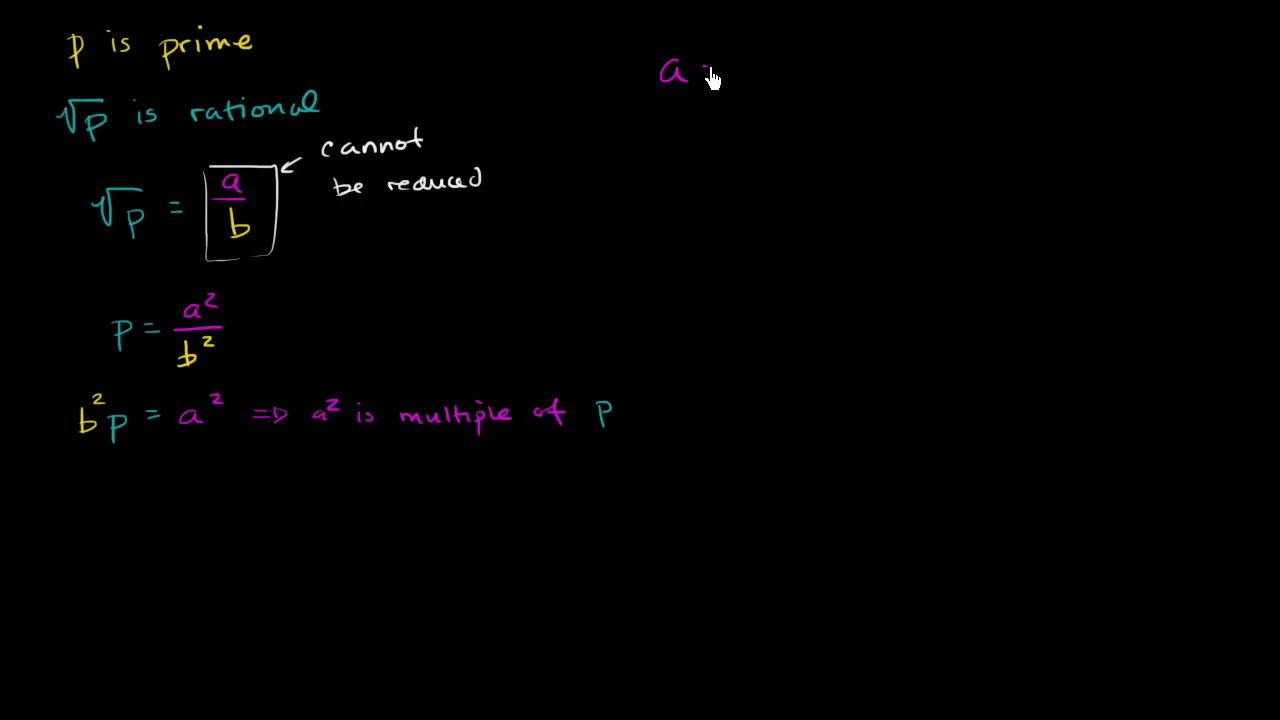 p is prime
√p is rational
cannot
be reduced
√p = a/b
p = a²/b²
b²p = a² ⇒ a² is multiple of p
a